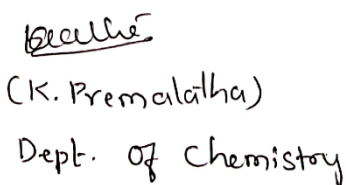 (K. Premalatha)
Dept. Of Chemistry